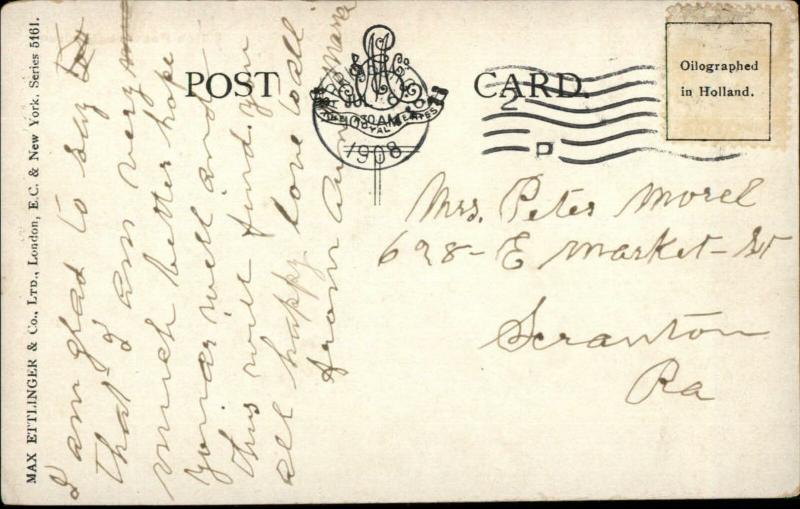 MAX ETTLINGER & Co., LTD., London, E.C. & New York. Series 5161.
POST CARD.
THE ROYAL SERIES
JUL 6
10 30 AM
1908
2
D
Oilographed
in Holland.
I am glad to say
that I am very
much better hope
your well and
this will find you
all happy love to all
from Aunt Mara
Mrs. Peter Morel
628 - E Market - St
Scranton
Pa